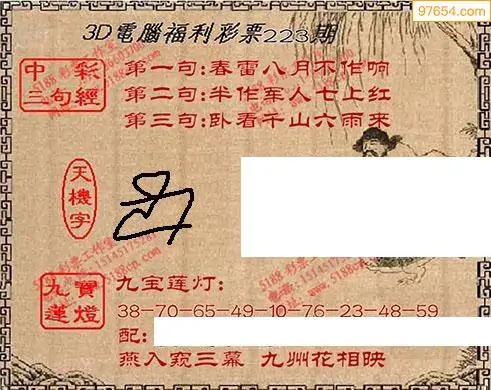 97654.com
3D電腦福利彩票223期
中彩三句經
第一句:春雷八月不作响
第二句:半作军人七上红
第三句:卧看千山六雨来
天機字
九寶蓮燈
九宝莲灯:
38-70-65-49-10-76-23-48-59
配:
燕入窥三幕 九州花相映